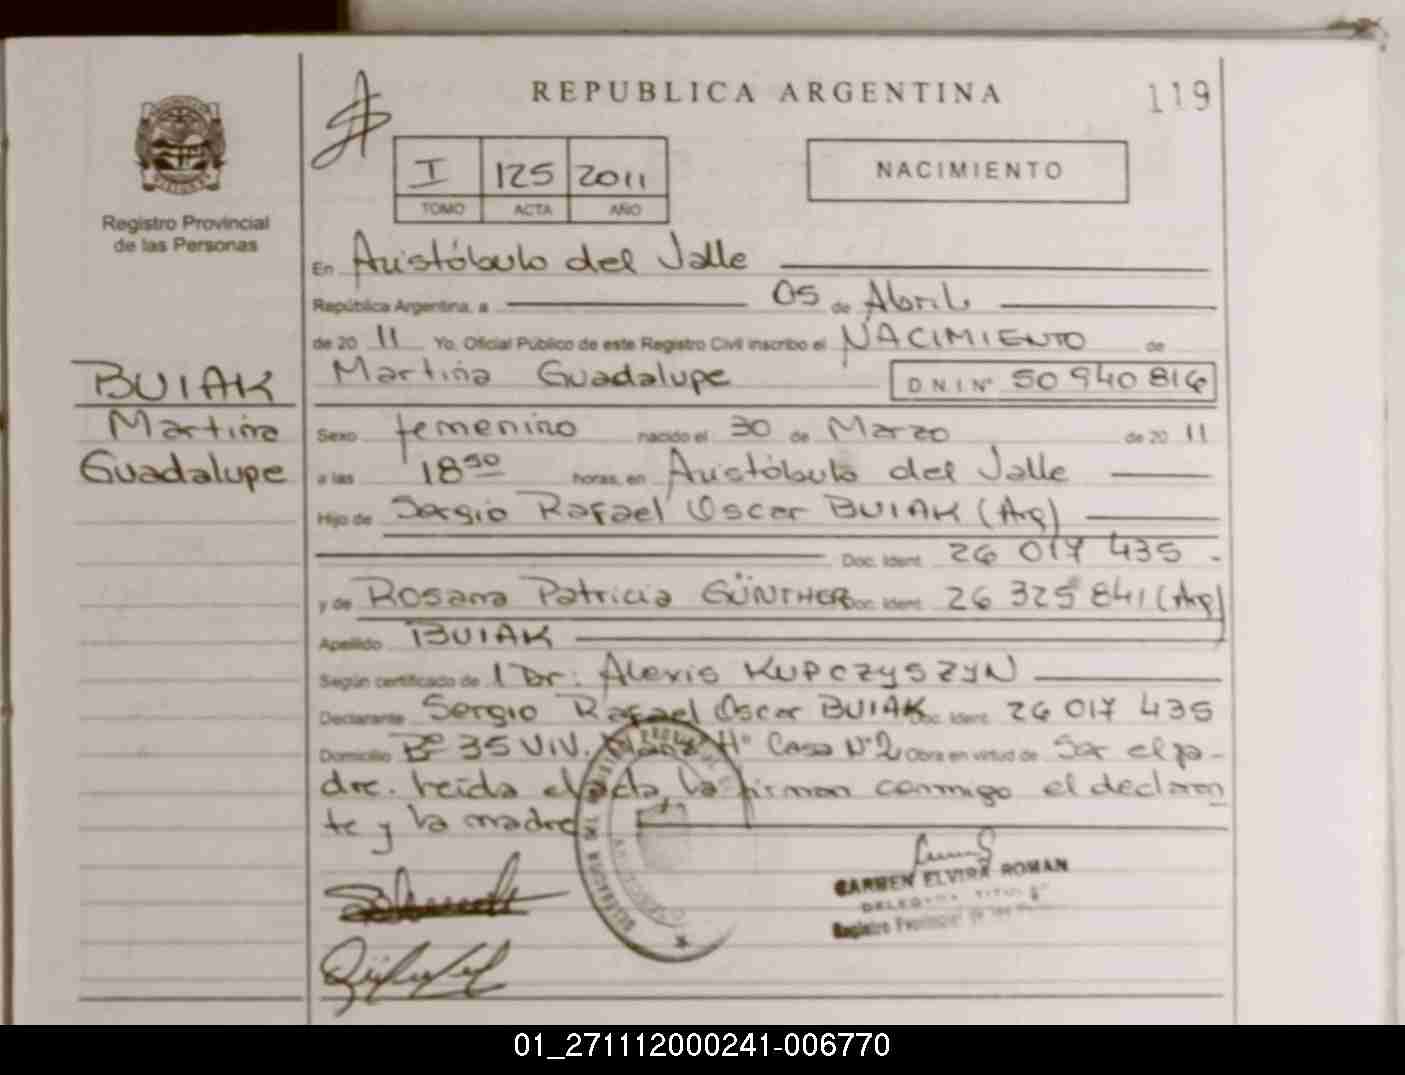 REPUBLICA ARGENTINA
119
Registro Provincial
de las Personas
I 125 2011
TOMO ACTA AÑO
NACIMIENTO
En Aristóbulo del Valle
República Argentina, a 05 de Abril
de 20 11 Yo, Oficial Público de este Registro Civil inscribo el NACIMIENTO de
Martina Guadalupe D.N.I. N° 50 940 816
BUIAK
Martina
Guadalupe
Sexo femenino nacido el 30 de Marzo de 20 11
a las 18 50 horas, en Aristóbulo del Valle
Hijo de Sergio Rafael Oscar BUIAK (Arg)
Doc. Ident. 26 017 435 -
y de Rosana Patricia GÜNTHER Doc. Ident. 26 325 841 (Arg)
Apellido BUIAK
Según certificado de l Dr. Alexis KUPCZYSZYN
Declarante Sergio Rafael Oscar BUIAK Doc. Ident. 26 017 435
Domicilio B° 35 VIV. Casa N°2 Obra en virtud de Ser el pa-
dre. Leída el acta, la firman conmigo el declaran
te y la madre
CARMEN ELVIRA ROMAN
Registro Provincial de las
01_271112000241-006770